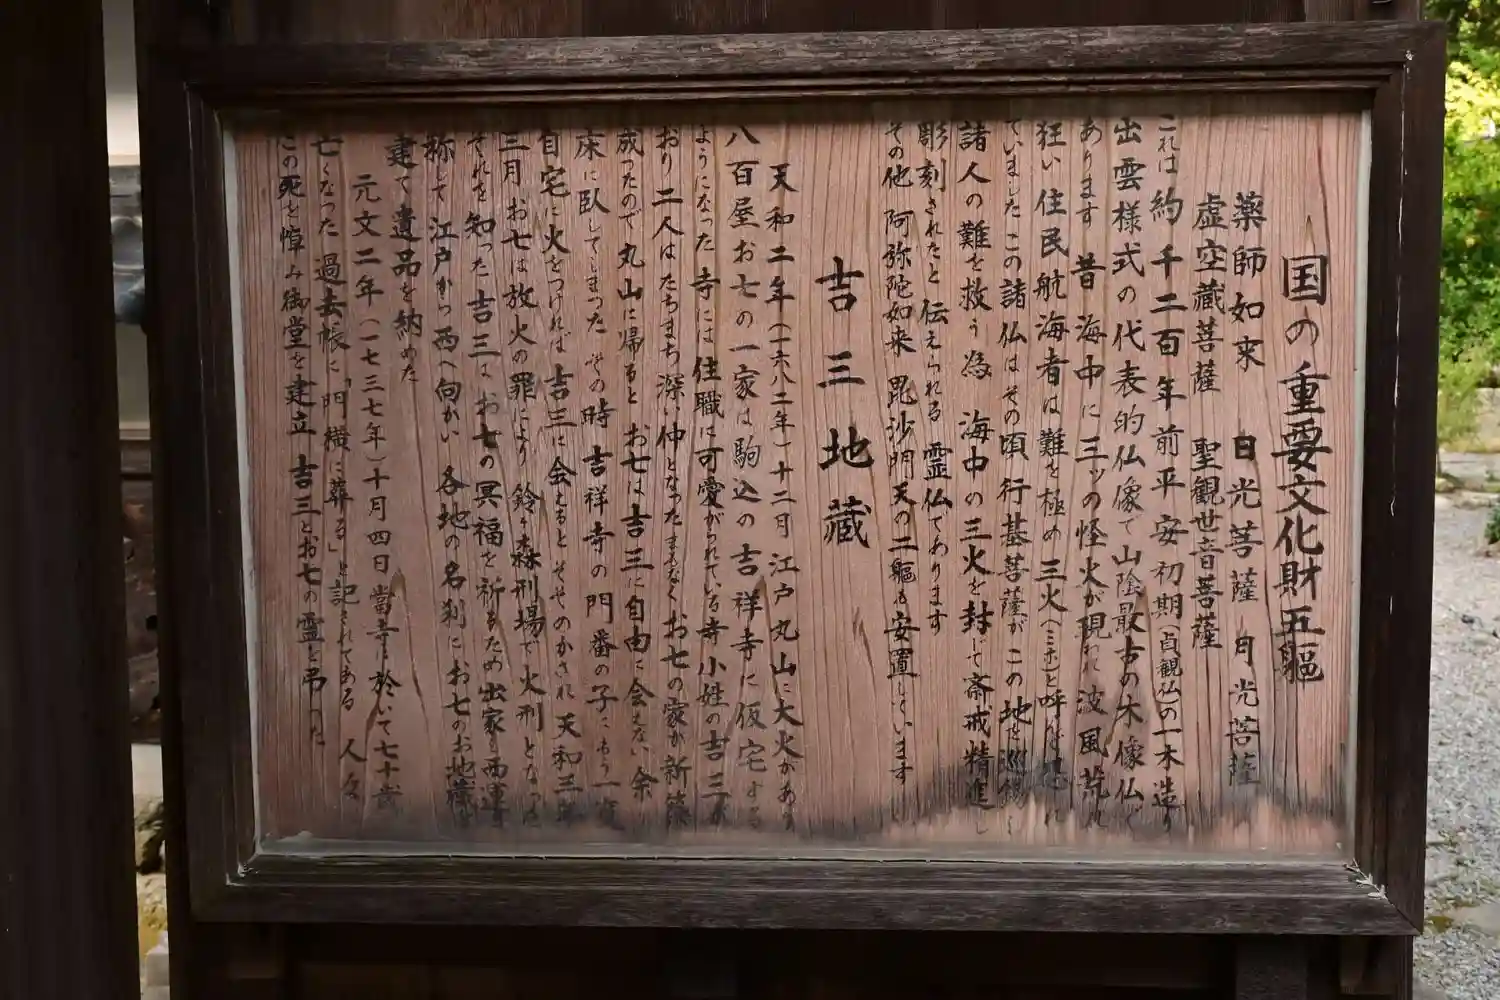 国の重要文化財五軀
薬師如来 日光菩薩 月光菩薩
虚空蔵菩薩 聖観世音菩薩
これは約千二百年前平安初期(貞観仏の一木造り
出雲様式の代表的仏像で山陰最古の木像仏で
あります 昔海中に三ッの怪火が現われ波風荒れ
狂い住民航海者は難を極め三火(ミホ)と呼ばれ
ていましたこの諸仏はその頃行基菩薩がこの地を巡錫し
諸人の難を救う為 海中の三火を封じて斎戒精進し
彫刻されたと伝えられる霊仏であります
その他 阿弥陀如来 毘沙門天の二軀も安置しています
吉三地蔵
天和二年(一六八二年)十二月江戸丸山に大火があり
八百屋お七の一家は駒込の吉祥寺に仮宅する
ようになった 寺には住職に可愛がられている寺小姓の吉三が
おり二人はたちまち深い仲となったまもなくお七の家が新築
成ったので丸山に帰るとお七は吉三に自由に会えない余り
床に臥してしまった その時吉祥寺の門番の子にもう一度
自宅に火をつければ吉三に会えるとそそのかされ天和三年
三月お七は放火の罪により鈴ヶ森刑場で火刑となった
それを知った吉三はお七の冥福を祈るため出家し西運と
称して江戸から西へ向かい各地の名刹にお七のお地蔵を
建て遺品を納めた
元文二年(一七三七年)十月四日當寺に於いて七十歳
亡くなった過去帳に「門横に葬る」と記されてある 人々
この死を悼み御堂を建立 吉三とお七の霊と弔った